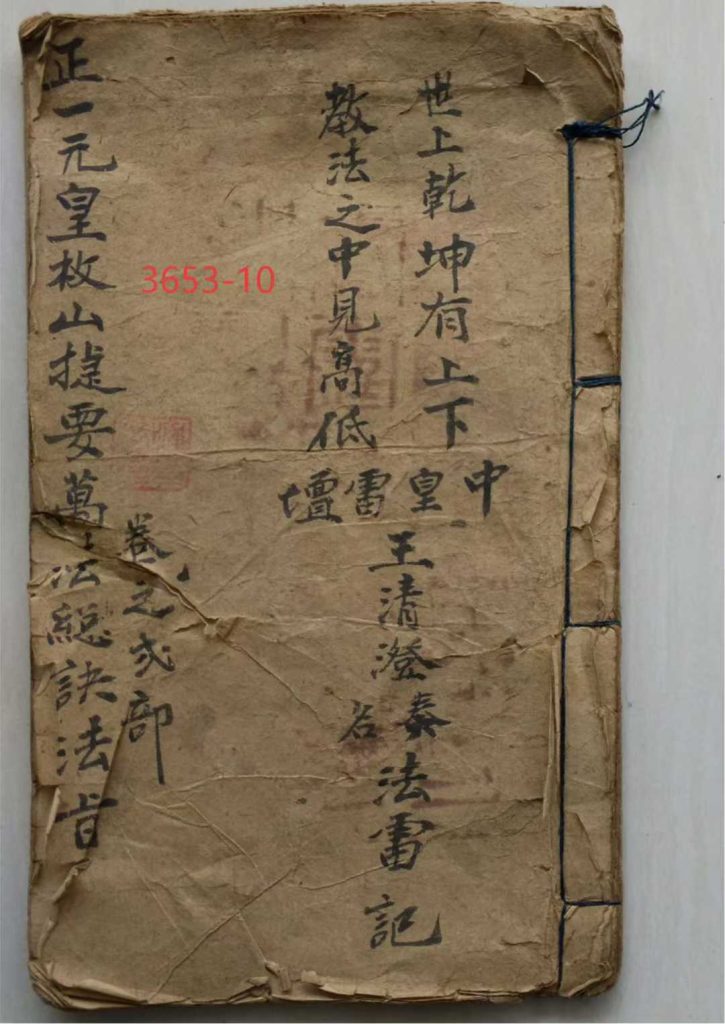 世上乾坤有上下
教法之中見高低
中皇雷壇
王清澄
奏名
法雷
記
3653-10
卷之弍部
正一元皇枚山捷要萬法總訣法旨